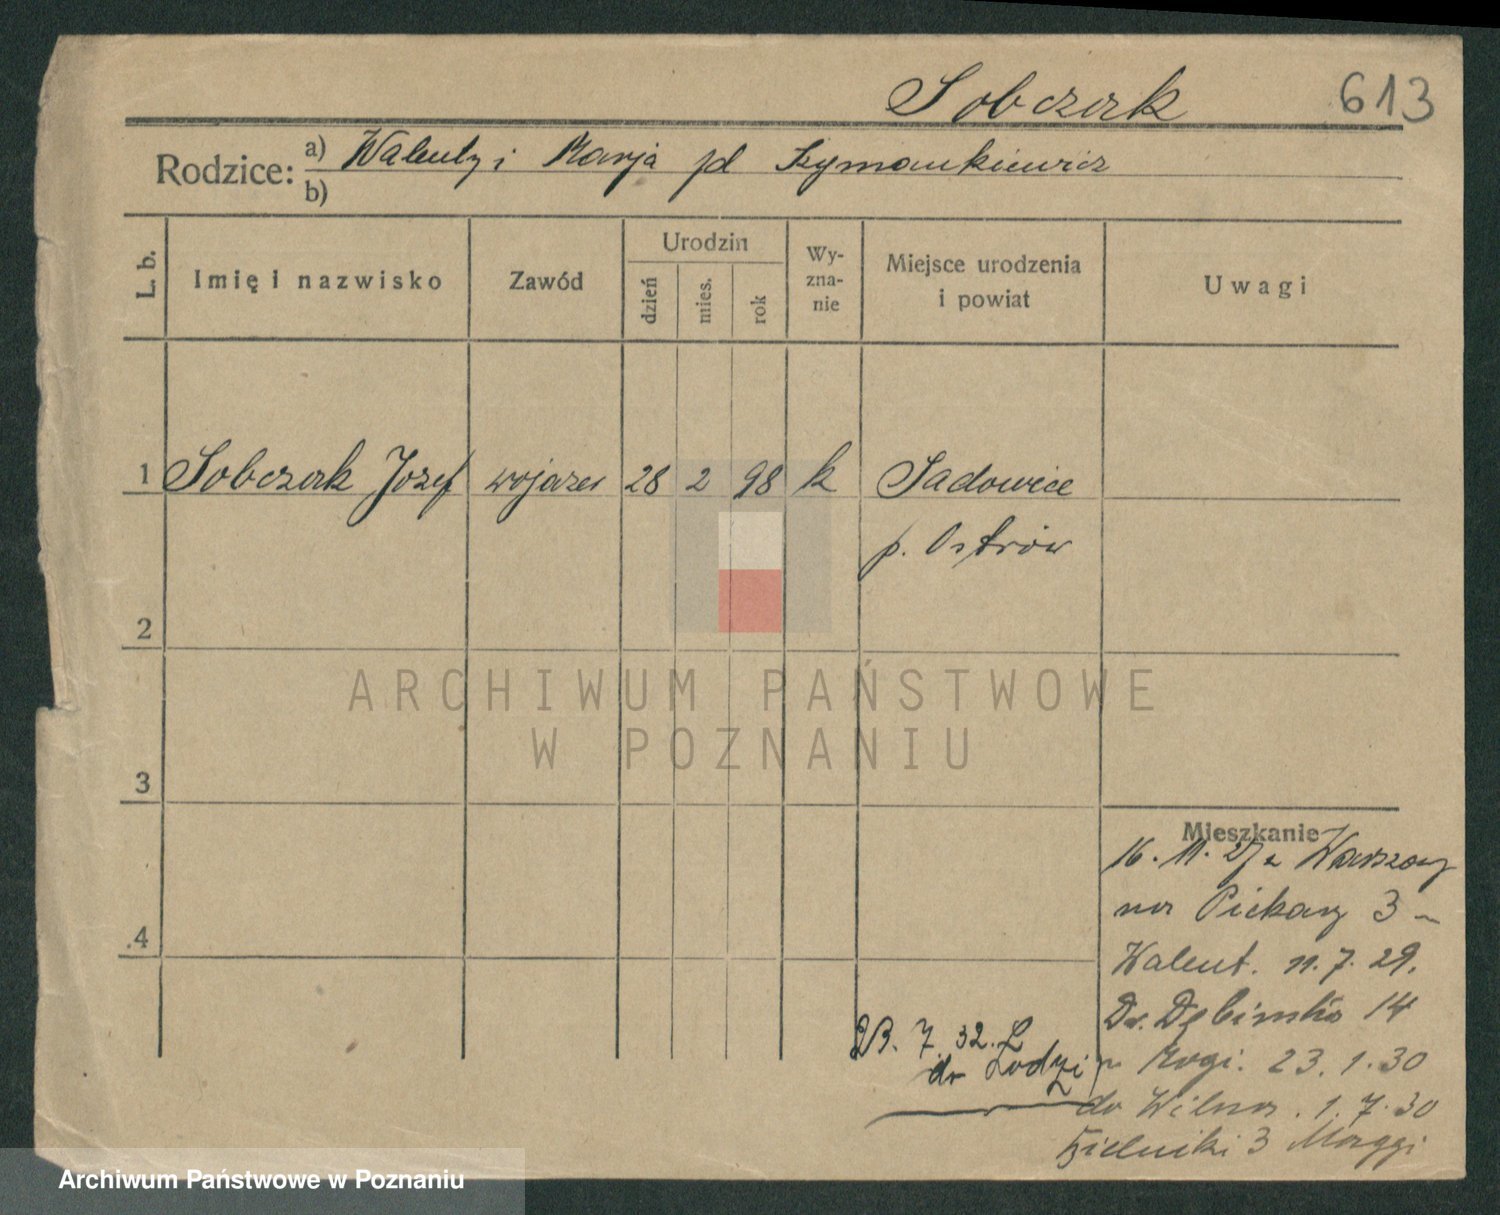 Sobczak 613
Rodzice: a) Walenty i Marja pd Szymankiewicz
b)
L. b. Imię i nazwisko Zawód Urodzin dzień mies. rok Wy-zna-nie Miejsce urodzenia i powiat Uwagi
1 Sobczak Józef wojażer 28 2 98 k Sadowice
p. Ostrów
2
ARCHIWUM PAŃSTWOWE
W POZNANIU
3
Mieszkanie
16. 11. 27 z Warszawy
na Piekary 3
Walent. 11. 7. 29.
Dr. Dębińska 14
Magi. 23. 1. 30
4
do Wilna. 1. 7. 30
Zielniki 3 Maggi
7. 32. do Łodzi
Archiwum Państwowe w Poznaniu